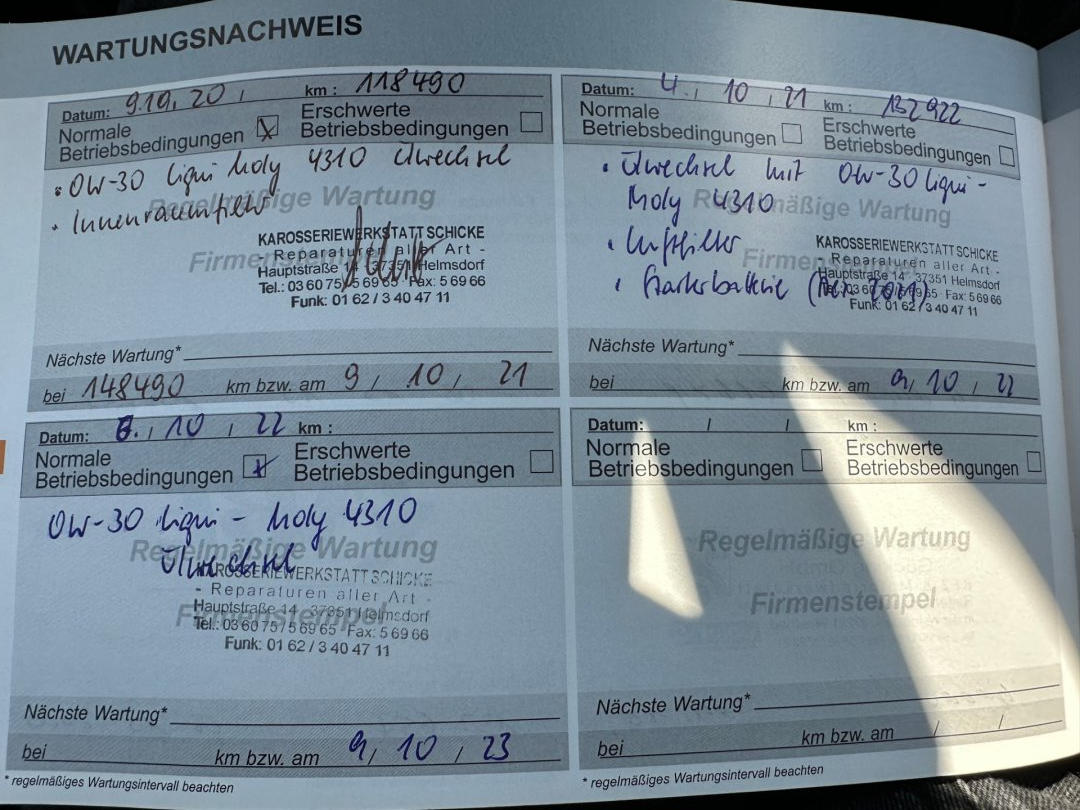 WARTUNGSNACHWEIS
Datum: 9.10, 20, km: 118490
Normale Betriebsbedingungen x Erschwerte Betriebsbedingungen
• 0W-30 Liqui Moly 4310 Ölwechsel
• Innenraumfilter
Regelmäßige Wartung
Firmenstempel
KAROSSERIEWERKSTATT SCHICKE
- Reparaturen aller Art -
Hauptstraße 14 · 37351 Helmsdorf
Tel.: 03 60 75 / 5 69 65 · Fax: 5 69 66
Funk: 01 62 / 3 40 47 11
Nächste Wartung*
bei 148490 km bzw. am 9 / 10 / 21
Datum: 4. / 10 / 21 km: 132922
Normale Betriebsbedingungen Erschwerte Betriebsbedingungen
• Ölwechsel mit 0W-30 Liqui-
Moly 4310
• Luftfilter
• Starterbatterie
Regelmäßige Wartung
Firmenstempel
KAROSSERIEWERKSTATT SCHICKE
- Reparaturen aller Art -
Hauptstraße 14 · 37351 Helmsdorf
Tel.: 03 60 75 / 5 69 65 · Fax: 5 69 66
Funk: 01 62 / 3 40 47 11
Nächste Wartung*
bei km bzw. am 9 / 10 / 22
Datum: 6. / 10 / 22 km:
Normale Betriebsbedingungen x Erschwerte Betriebsbedingungen
0W-30 Liqui-Moly 4310
Ölwechsel
Regelmäßige Wartung
Firmenstempel
KAROSSERIEWERKSTATT SCHICKE
- Reparaturen aller Art -
Hauptstraße 14 · 37351 Helmsdorf
Tel.: 03 60 75 / 5 69 65 · Fax: 5 69 66
Funk: 01 62 / 3 40 47 11
Nächste Wartung*
bei km bzw. am 9 / 10 / 23
* regelmäßiges Wartungsintervall beachten
Datum: / / km:
Normale Betriebsbedingungen Erschwerte Betriebsbedingungen
Regelmäßige Wartung
Firmenstempel
Nächste Wartung*
bei km bzw. am / /
* regelmäßiges Wartungsintervall beachten